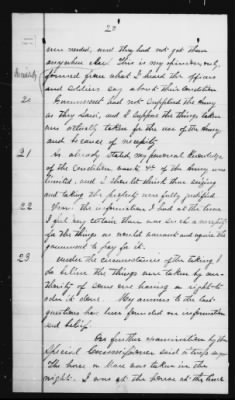 20
were needed, and they had not got them
anywhere else. This is my opinion only,
formed from what I heard the officers
and soldiers say about their condition
Necessity
20
Government had not supplied the Army
as they said, and I suppose the things taken
were actually taken for the use of the Army
and because of necessity
21
As already stated my personal knowledge
of the condition wants &c of the Army was
limited, and I should think their seizing
and taking the property were fully justified
22
From the information I had at the time
I feel very certain there was such a necessity
for the things as would warrant and require the
government to pay for it.
23
Under the circumstances of the taking I
do believe the things were taken by au-
thority of some one having a right to
order it done. My answers to the last
questions have been founded on information
and belief.
On further examination by the
Special Commissioner said witness says
The horse or Mare was taken in the
night. I was at the house at the time